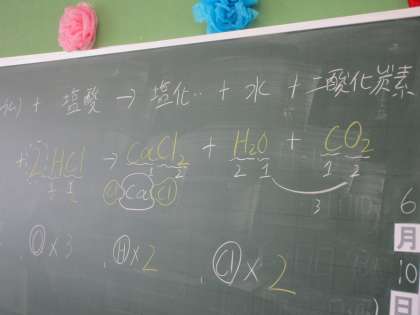 + 塩酸 → 塩化‥ + 水 + 二酸化炭素
+ 2HCl → CaCl₂ + H₂O + CO₂
1 1 1 2 2 1 1 2
Cl Ca Cl
3
O×3 H×2 Cl×2
6
月
10
日